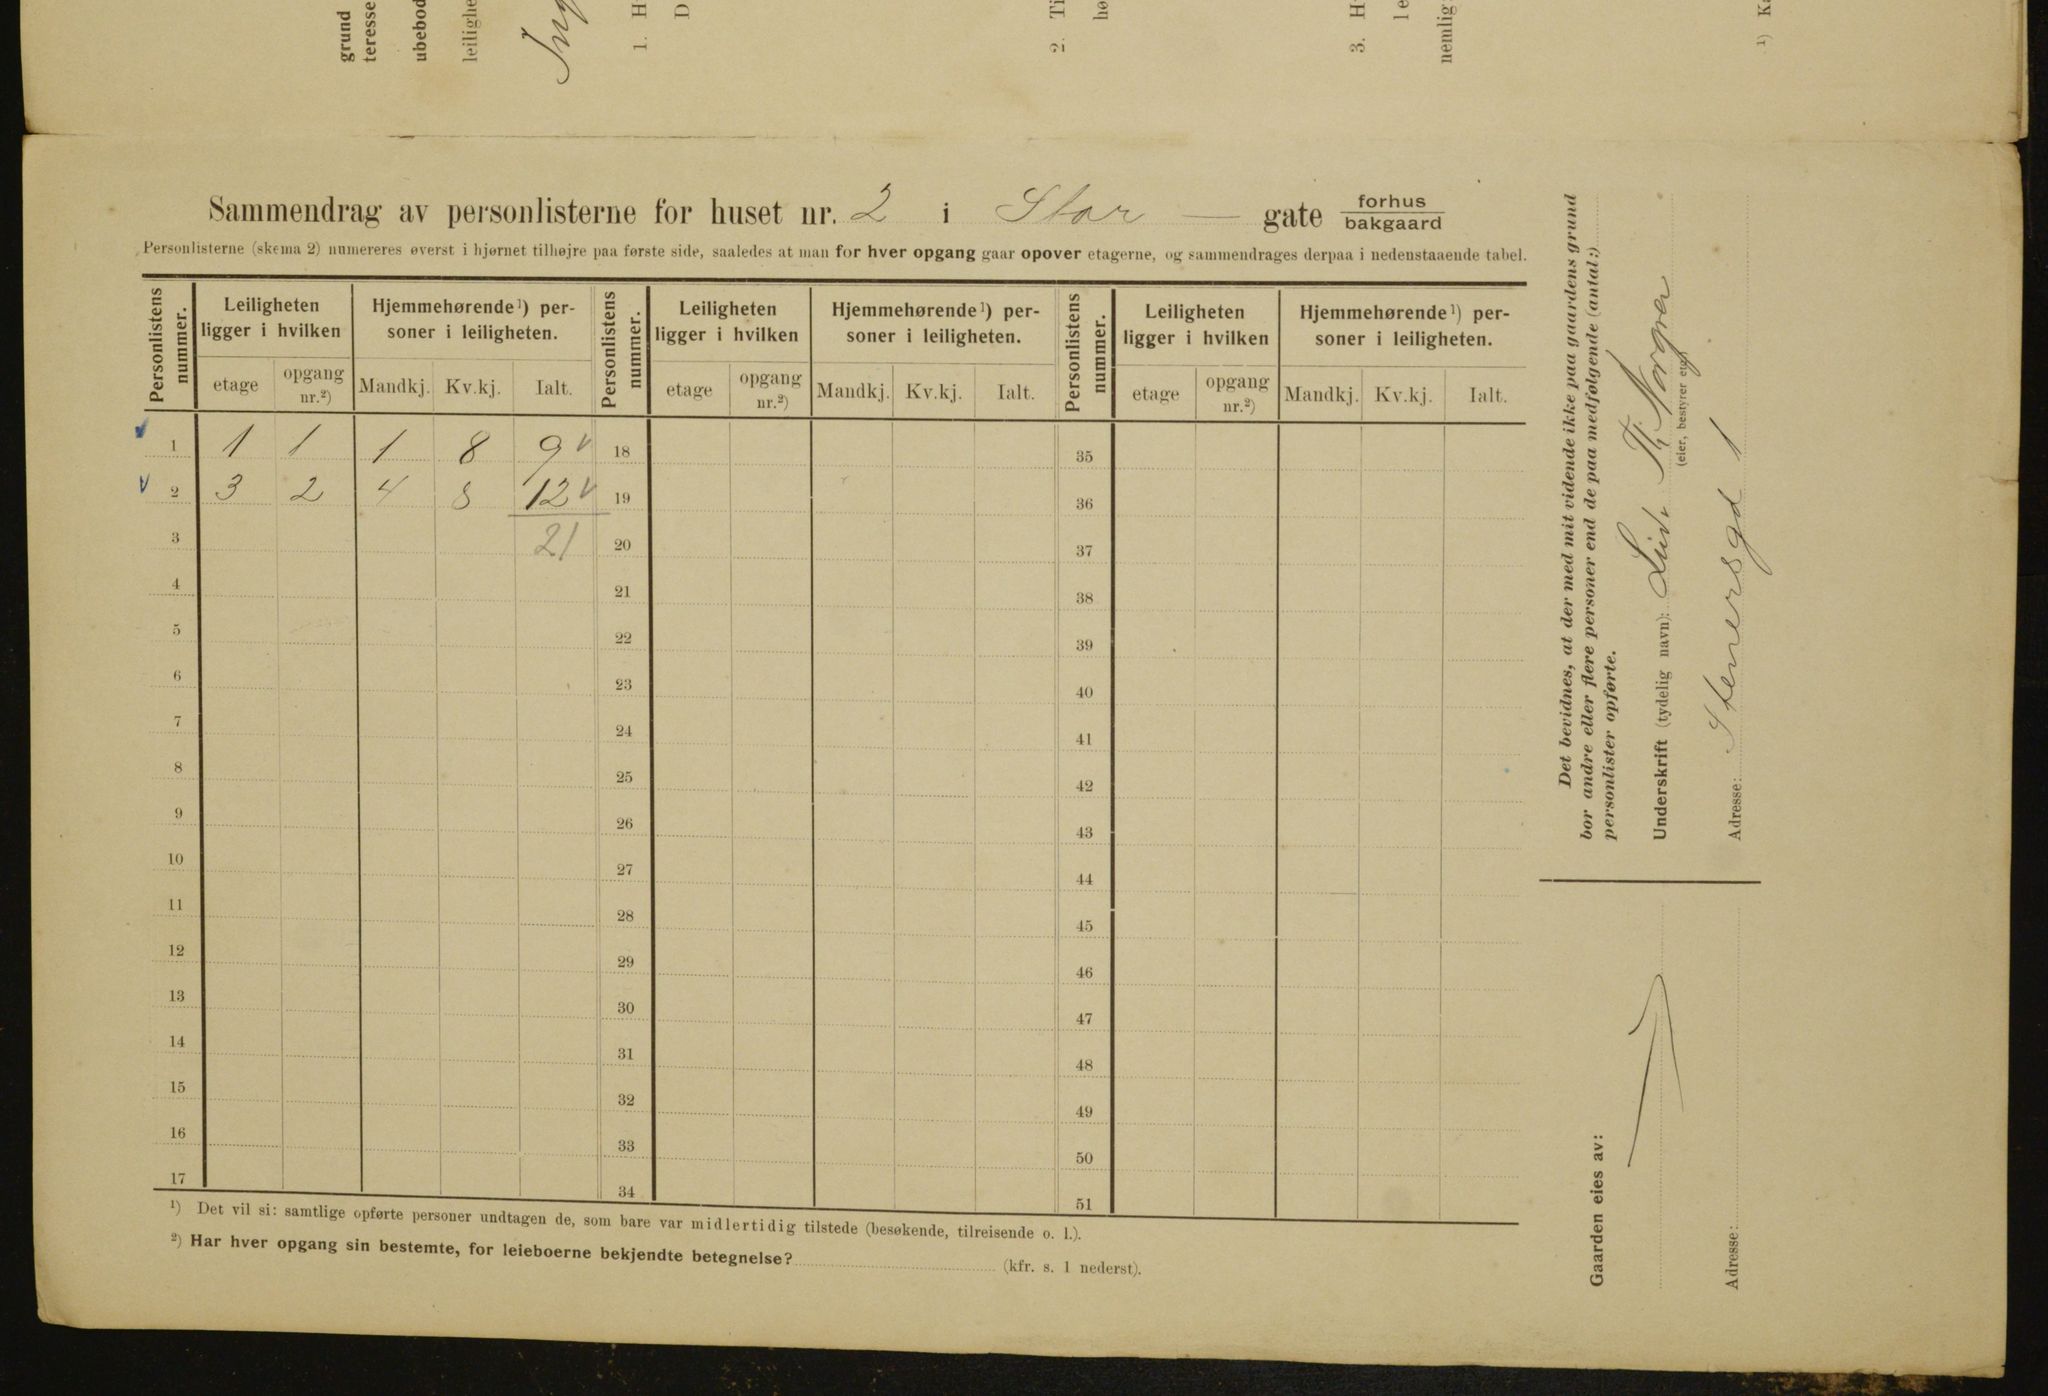 grund
teresse
ubebod
leilighe
1. H
D
2. Ti
hø
3. H
le
nemlig
¹) Ka
Sammendrag av personlisterne for huset nr. 2 i Stor — gate forhus
bakgaard
Personlisterne (skema 2) numereres øverst i hjørnet tilhøjre paa første side, saaledes at man for hver opgang gaar opover etagerne, og sammendrages derpaa i nedenstaaende tabel.
Personlistens nummer. Leiligheten ligger i hvilken Hjemmehørende¹) personer i leiligheten. Personlistens nummer. Leiligheten ligger i hvilken Hjemmehørende¹) personer i leiligheten. Personlistens nummer. Leiligheten ligger i hvilken Hjemmehørende¹) personer i leiligheten.
etage opgang nr.²) Mandkj. Kv.kj. Ialt. etage opgang nr.²) Mandkj. Kv.kj. Ialt. etage opgang nr.²) Mandkj. Kv.kj. Ialt.
1 1 1 1 8 9 18 35
2 3 2 4 8 12 19 36
3 21 20 37
4 21 38
5 22 39
6 23 40
7 24 41
8 25 42
9 26 43
10 27 44
11 28 45
12 29 46
13 30 47
14 31 48
15 32 49
16 33 50
17 34 51
¹) Det vil si: samtlige opførte personer undtagen de, som bare var midlertidig tilstede (besøkende, tilreisende o. l.).
²) Har hver opgang sin bestemte, for leieboerne bekjendte betegnelse? (kfr. s. 1 nederst).
Det bevidnes, at der med mit vidende ikke paa gaardens grund
bor andre eller flere personer end de paa medfølgende (antal:)
personlister opførte.
Underskrift (tydelig navn):
(eier, bestyrer eng.
Adresse: Stenersgd 1
Gaarden eies av:
Adresse: